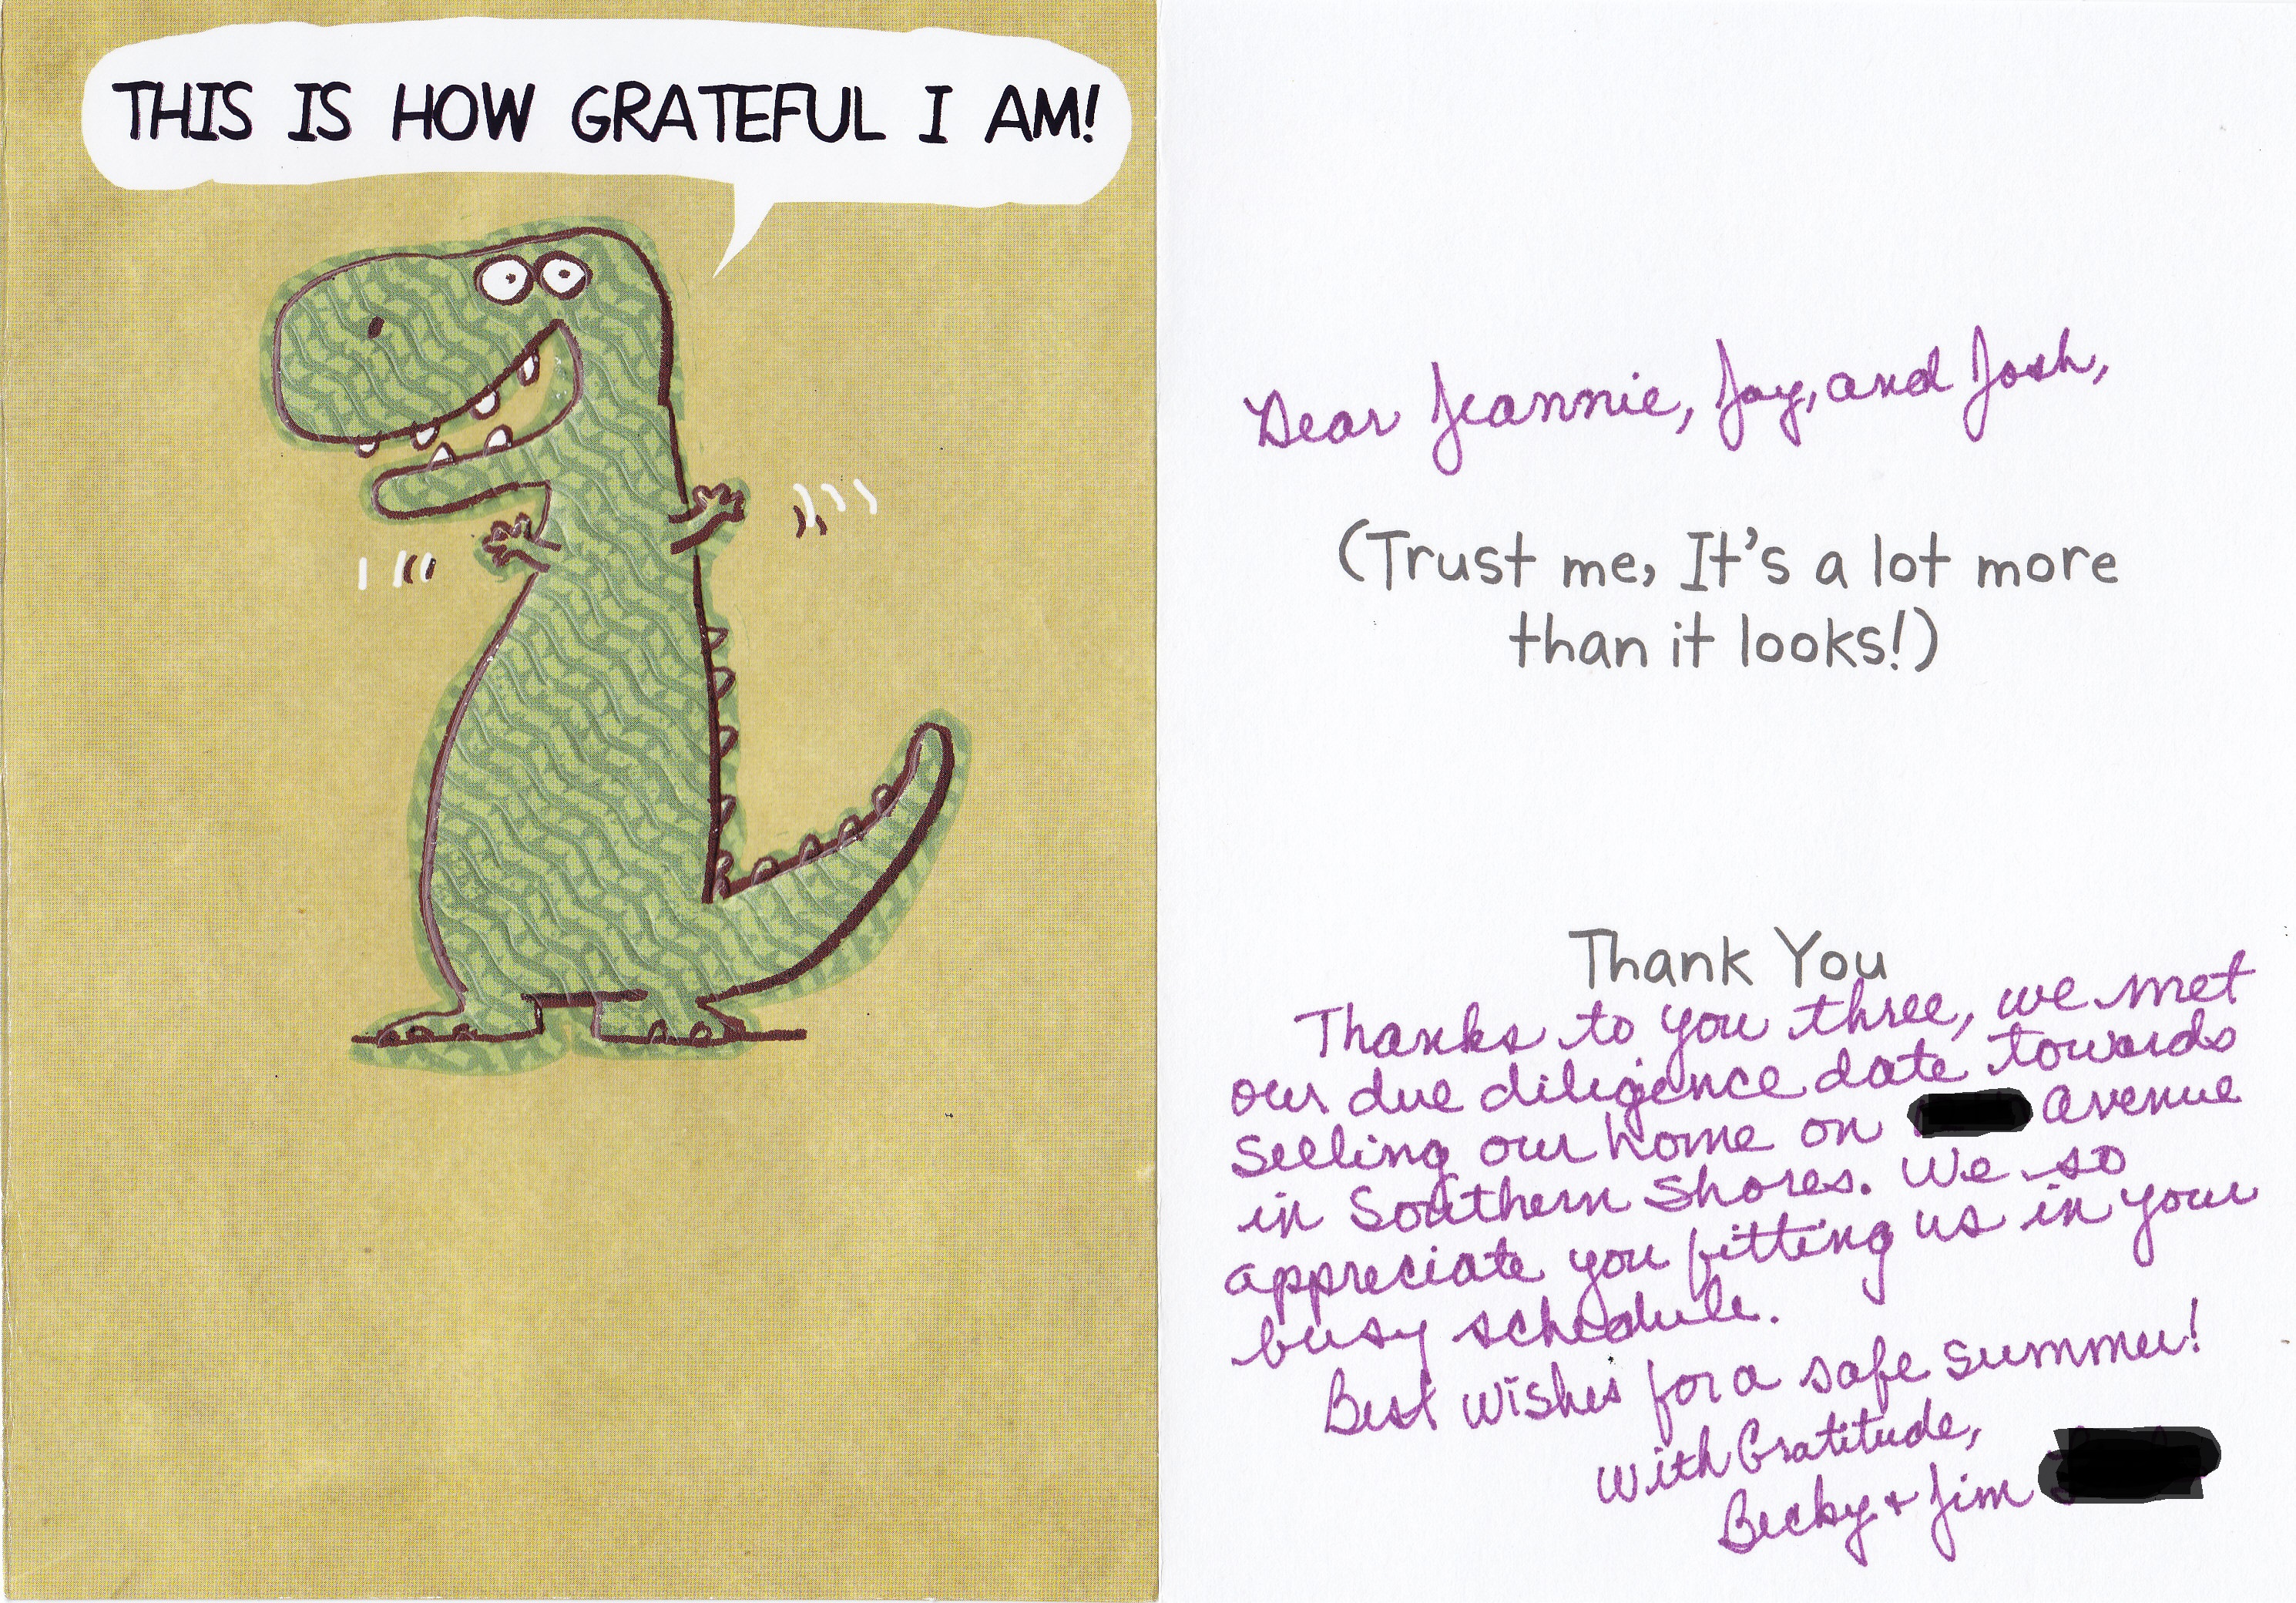 THIS IS HOW GRATEFUL I AM!
Dear Jeannie, Jay, and Josh,
(Trust me, It's a lot more
than it looks!)
Thank You
Thanks to you three, we met
our due diligence date towards
selling our home on Avenue
in Southern Shores. We so
appreciate you fitting us in your
busy schedule.
Best Wishes for a safe summer!
With Gratitude,
Becky + Jim